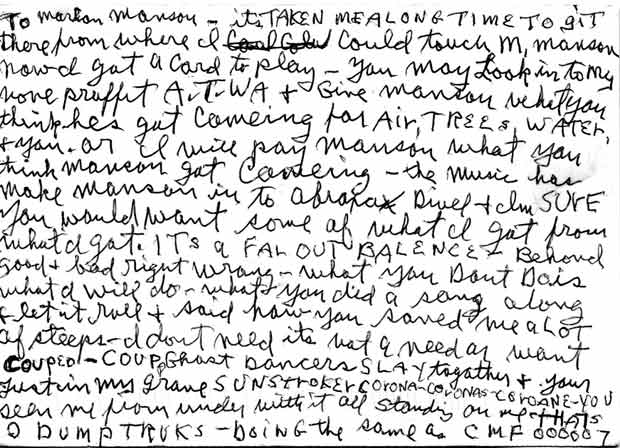 To marlon manson – its TAKEN ME A LONG TIME TO GIT
there from where I could touch M, manson
now I got a card to play – you may look in to my
none proffit A.T.WA + Give manson what you
think he's got comeing for Air, TREES, WATER,
+ you. or I will pay manson what you
think manson got comeing – the music has
make manson in to abraxas Divel + I'm SURE
you would want some of what I got from
what I got. ITS a FAR OUT BALENCE – Behond
good + bad right wrong – what you Dont Do is
what I will do – what you did a song along
+ let it roll + said how you saved me a LOT
of steeps – I dont need its not a need or want
COUPED – COUP, Ghost Dancers SLAY together + your
just in my grave SUNSTROKER CORONA-CORONAS-COROANE-YOU
seen me from under with it all standing on me THATS
2 DUMP TRUKS – DOING THE SAME as CMF 000007